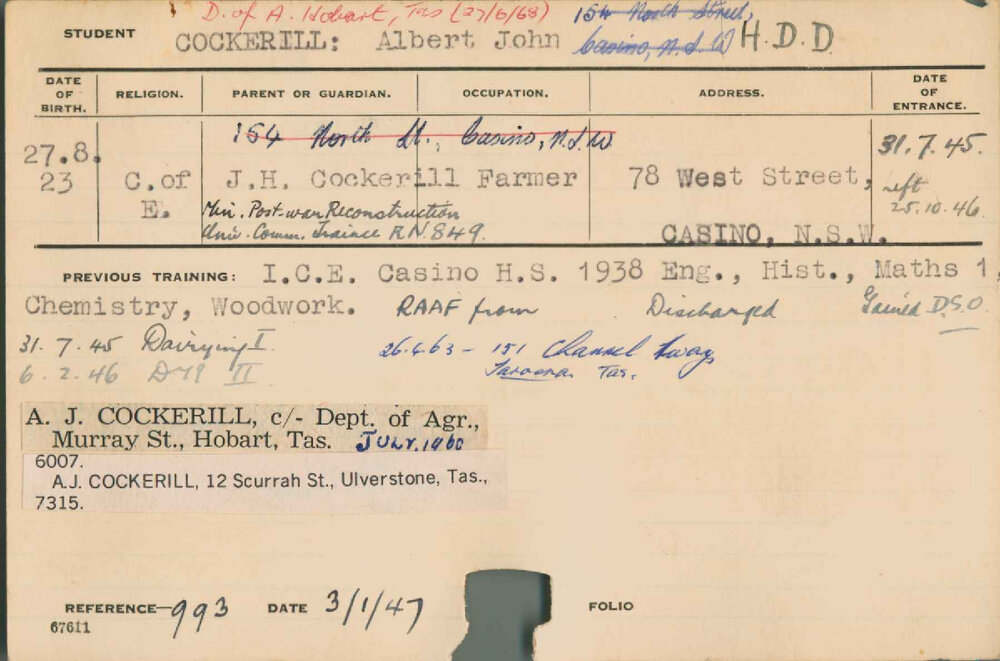 D. of A. Hobart, Tas (27/6/68)
154 North Street,
Casino, N.S.W
STUDENT COCKERILL: Albert John H.D.D
DATE OF BIRTH. RELIGION. PARENT OR GUARDIAN. OCCUPATION. ADDRESS. DATE OF ENTRANCE.
154 North St., Casino, N.S.W
31.7.45.
27.8.
23 C.of J.H. Cockerill Farmer 78 West Street, left
E. Min. Post-war Reconstruction 25.10.46.
Univ. Comm. Trainee RN 849. CASINO, N.S.W.
PREVIOUS TRAINING: I.C.E. Casino H.S. 1938 Eng., Hist., Maths 1,
Chemistry, Woodwork. RAAF from Discharged Gained D.S.O
31. 7. 45 Dairying I 26.6.63 - 151 Channel Hway
6. 2. 46 II Taroona Tas.
A. J. COCKERILL, c/- Dept. of Agr.,
Murray St., Hobart, Tas. JULY, 1960
6007.
A.J. COCKERILL, 12 Scurrah St., Ulverstone, Tas.,
7315.
REFERENCE 993 DATE 3/1/47 FOLIO
67611